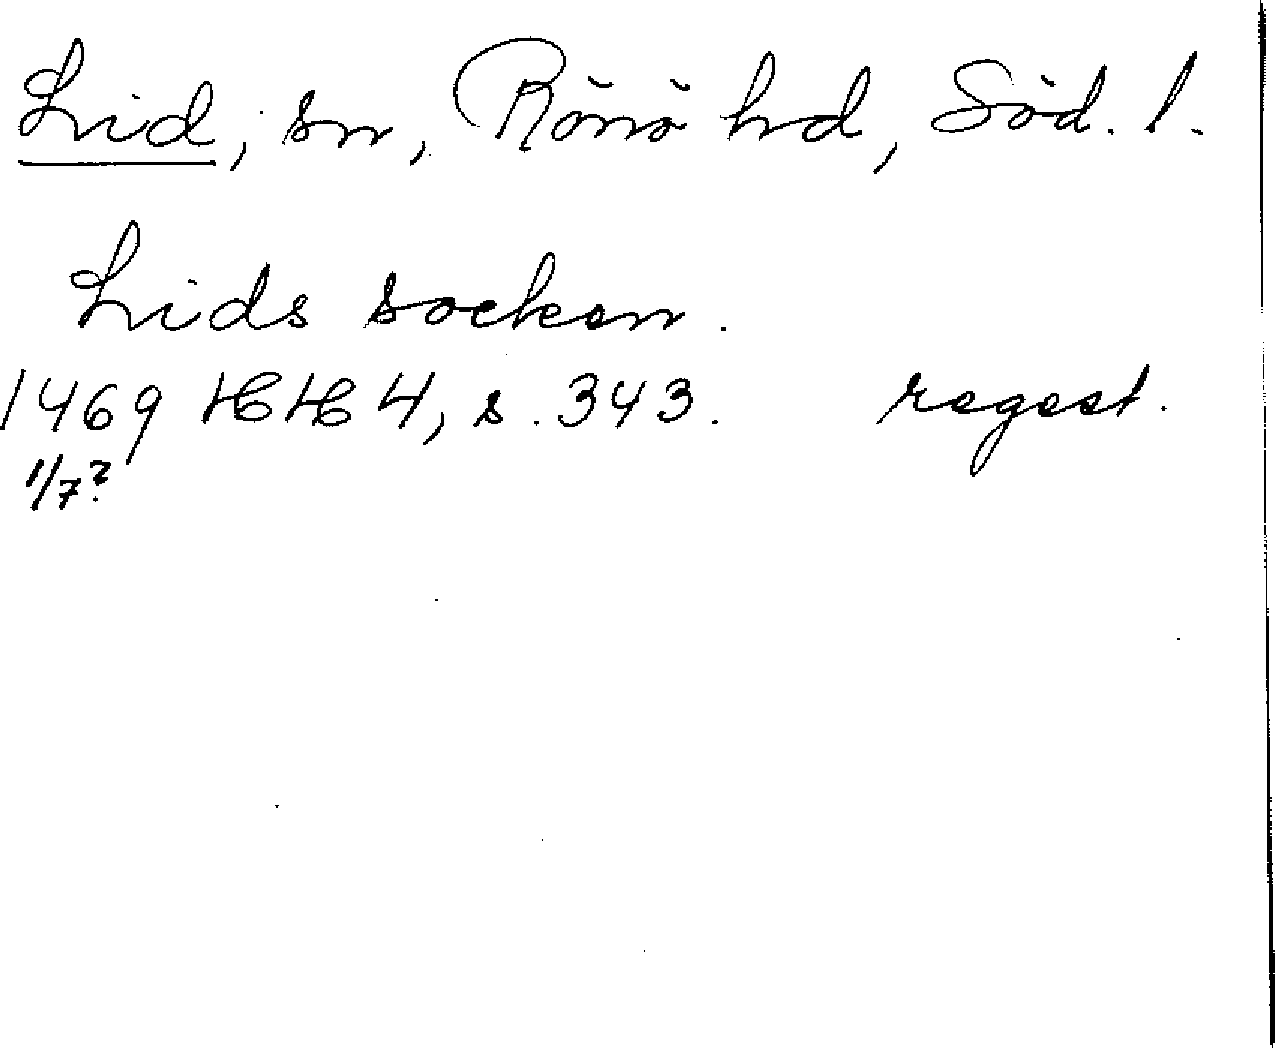 Lid, sn, Rönö hd, Söd. l.
Lids socken.
1469 HH 4, s. 343. regest.
1/7?